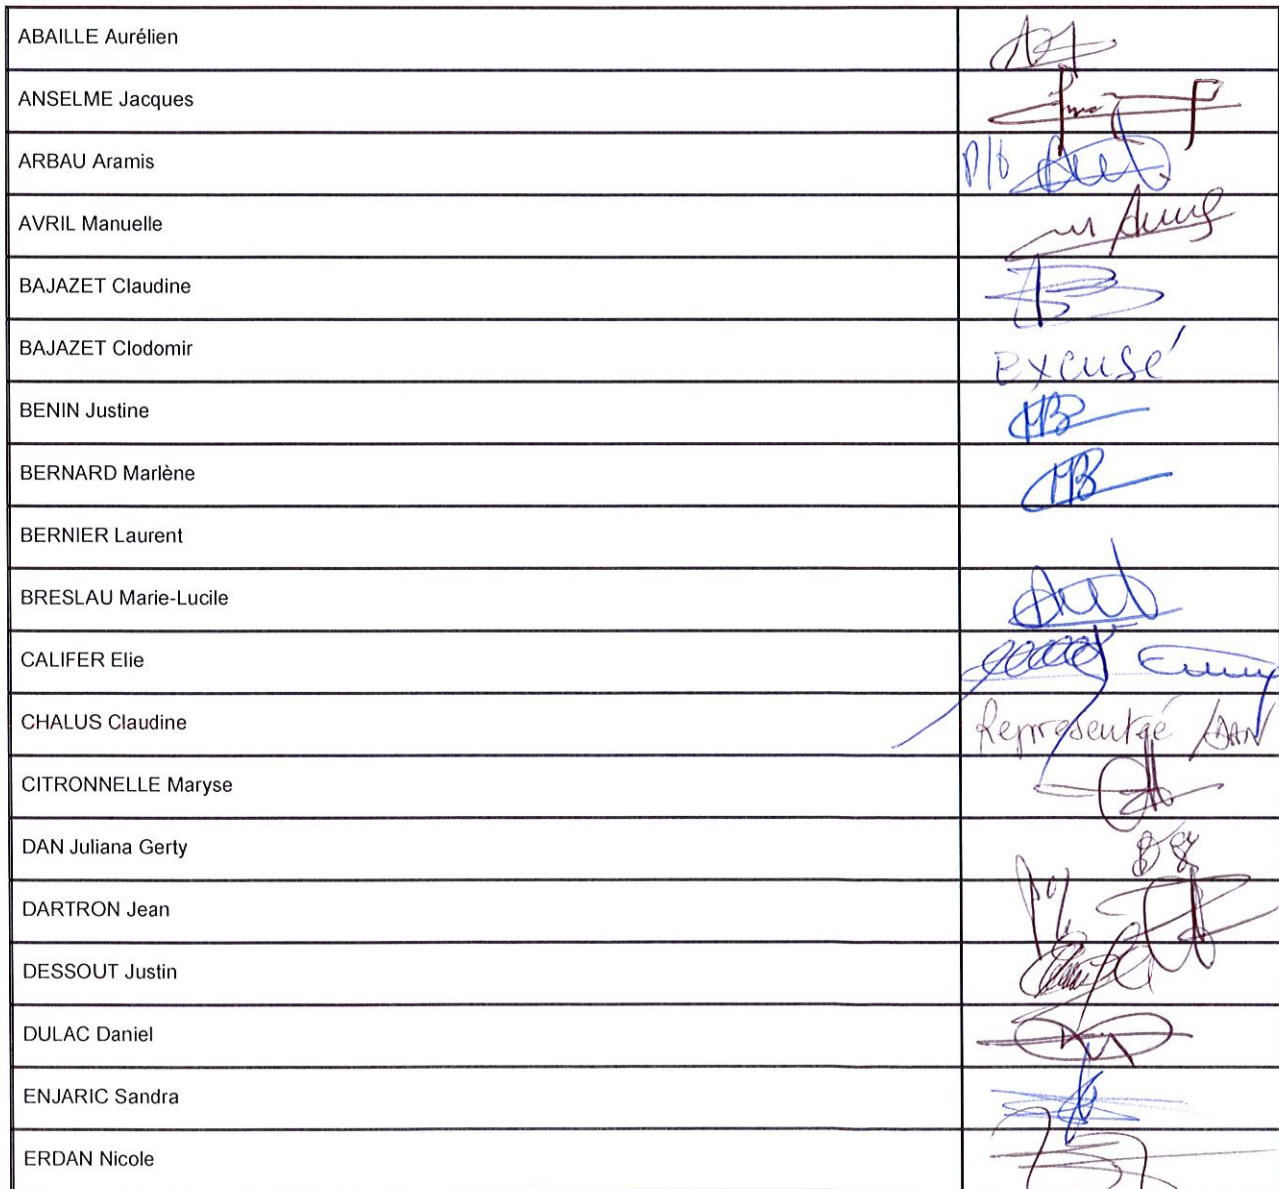 ABAILLE Aurélien
ANSELME Jacques
ARBAU Aramis P/o
AVRIL Manuelle
BAJAZET Claudine
BAJAZET Clodomir Excusé
BENIN Justine
BERNARD Marlène MB
BERNIER Laurent
BRESLAU Marie-Lucile
CALIFER Elie
CHALUS Claudine Représentée DAN
CITRONNELLE Maryse
DAN Juliana Gerty
DARTRON Jean
DESSOUT Justin
DULAC Daniel
ENJARIC Sandra
ERDAN Nicole